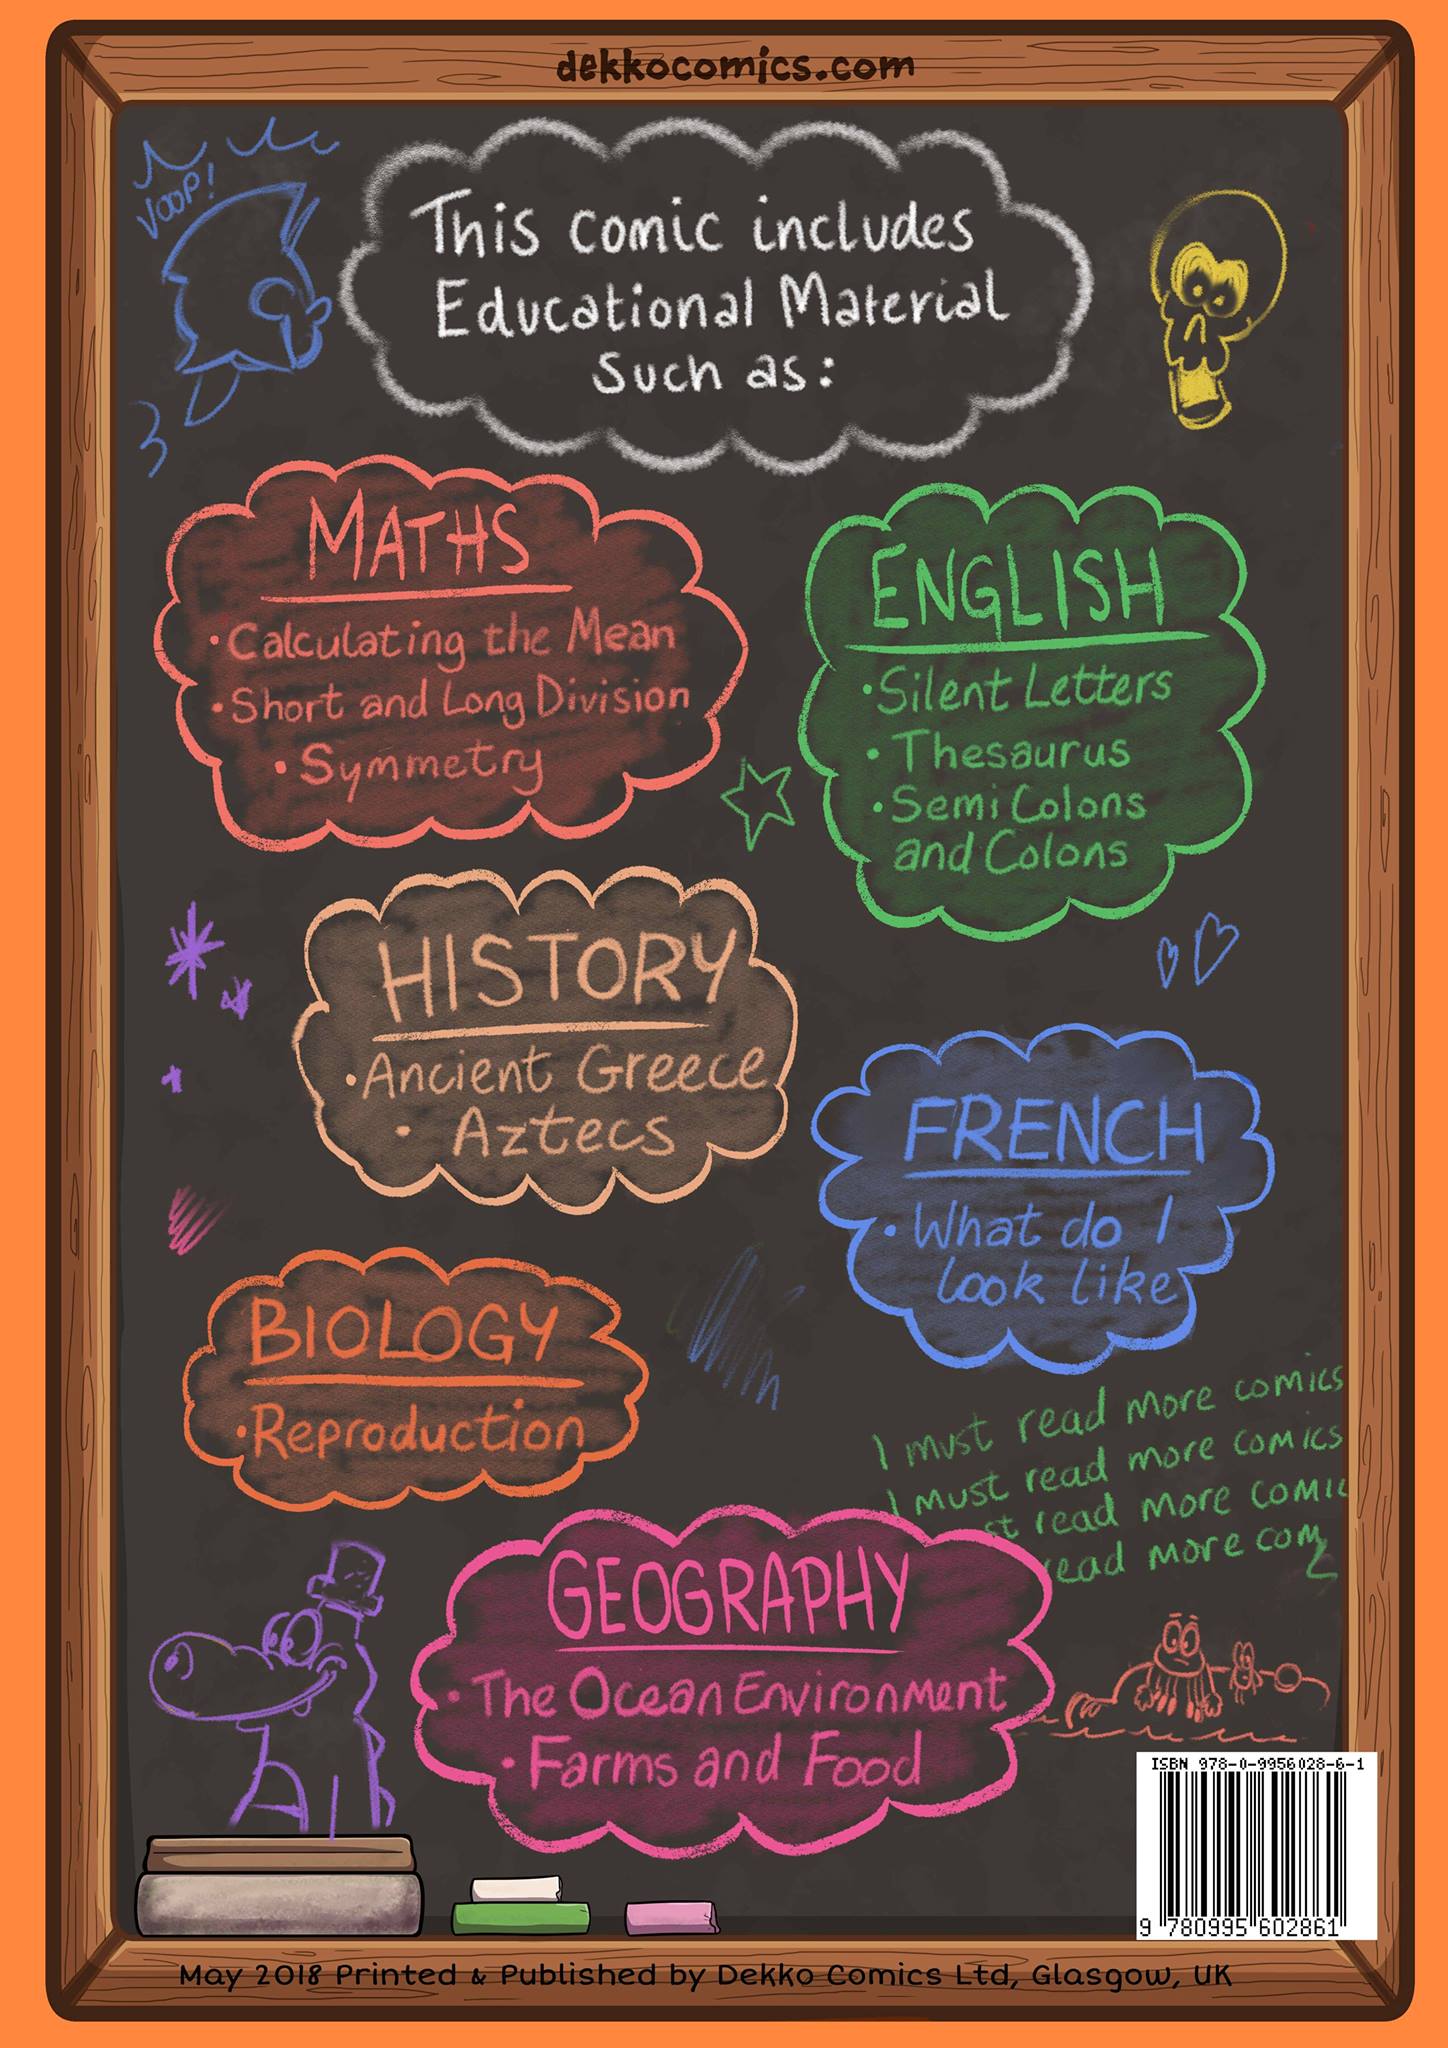 dekkocomics.com
VOOP!
This comic includes
Educational Material
Such as:
MATHS
• Calculating the Mean
• Short and Long Division
• Symmetry
ENGLISH
• Silent Letters
• Thesaurus
• Semi Colons
and Colons
HISTORY
• Ancient Greece
• Aztecs
FRENCH
• What do I
look like
BIOLOGY
• Reproduction
I must read more comics
I must read more comics
st read more comic
ead more com
GEOGRAPHY
• The Ocean Environment
• Farms and Food
ISBN 978-0-9956028-6-1
9 780995 602861
May 2018 Printed & Published by Dekko Comics Ltd, Glasgow, UK